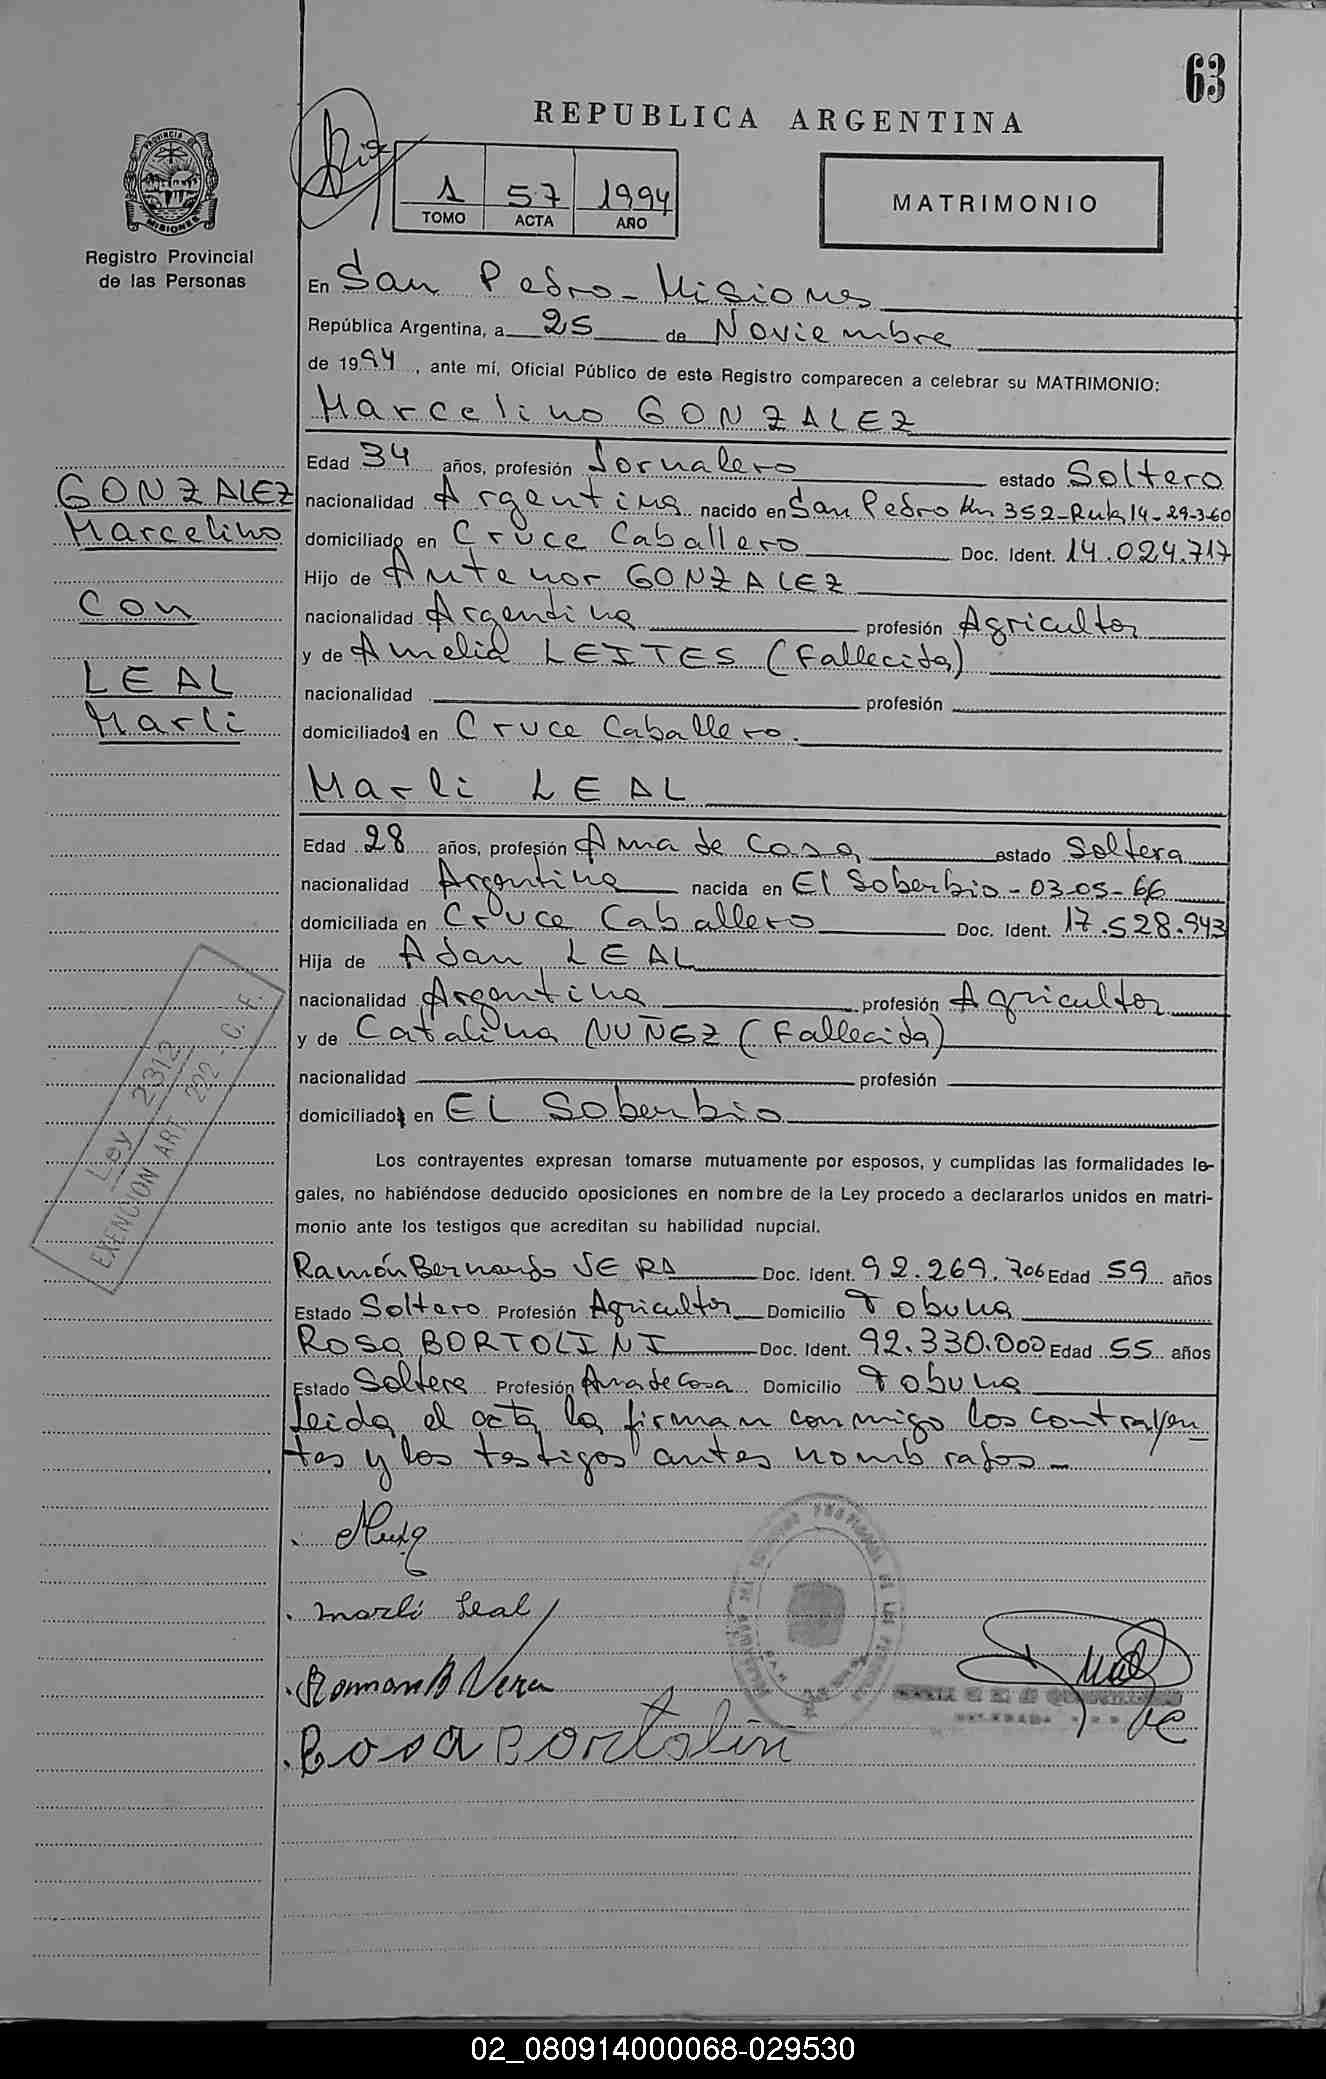 63
REPUBLICA ARGENTINA
PROVINCIA DE
MISIONES
Registro Provincial
de las Personas
1 57 1994
TOMO ACTA AÑO
MATRIMONIO
En San Pedro - Misiones
República Argentina, a 25 de Noviembre
de 1994, ante mí, Oficial Público de este Registro comparecen a celebrar su MATRIMONIO:
Marcelino GONZALEZ
Edad 34 años, profesión Jornalero estado Soltero
nacionalidad Argentina nacido en San Pedro Km 352-Ruta 14-29-3-60
domiciliado en Cruce Caballero Doc. Ident. 14.024.717
Hijo de Antenor GONZALEZ
nacionalidad Argentina profesión Agricultor
y de Amelia LEITES (Fallecida)
nacionalidad profesión
domiciliados en Cruce Caballero.
Marli LEAL
Edad 28 años, profesión Ama de Casa estado Soltera
nacionalidad Argentina nacida en El Soberbio - 03-05-66
domiciliada en Cruce Caballero Doc. Ident. 17.528.943
Hija de Adan LEAL
nacionalidad Argentina profesión Agricultor
y de Catalina NUÑEZ (Fallecida)
nacionalidad profesión
domiciliados en EL Soberbio
Los contrayentes expresan tomarse mutuamente por esposos, y cumplidas las formalidades le-
gales, no habiéndose deducido oposiciones en nombre de la Ley procedo a declararlos unidos en matri-
monio ante los testigos que acreditan su habilidad nupcial.
Ramón Bernardo VERA Doc. Ident. 92.269.706 Edad 59 años
Estado Soltero Profesión Agricultor Domicilio Tobuna
Rosa BORTOLINI Doc. Ident. 92.330.000 Edad 55 años
Estado Soltera Profesión Ama de Casa Domicilio Tobuna
Leida el acta la firman conmigo los contrayen-
tes y los testigos antes nombrados.-
Marli Leal
Ramon B Vera
Rosa Bortolini
GONZALEZ
Marcelino
Con
LEAL
Marli
Ley 2312
EXENCION ART. 222 - C. F.
02_080914000068-029530